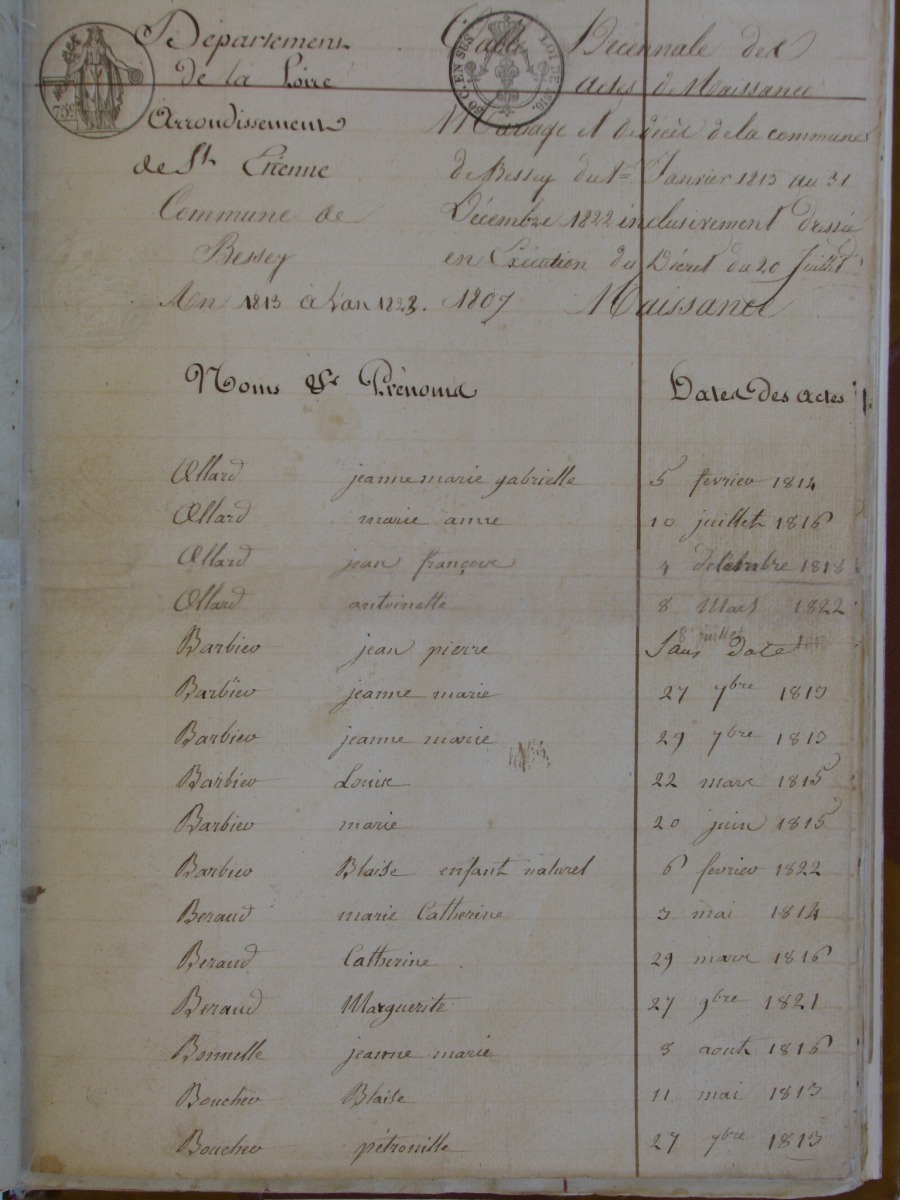 Département
de la Loire
Arrondissement
de St. Etienne
Commune de
Bessey
An 1813 à l'an 1822.
Table Décennale des
actes de Naissance
Mariage et de décès de la commune
de Bessey du 1er Janvier 1813 au 31
Décembre 1822 inclusivement dressée
en Exécution du Décret du 20 Juillet
1807 Naissance
75c
50 C. EN SUS LOI DE 1816.
Noms & Prénoms Dates des actes
Allard jeanne marie gabrielle 5 fevrier 1814
Allard marie anne 10 juillet 1816
Allard jean françois 4 1818
Allard antoinette 8 Mars 1822
8 juillet
Barbier jean pierre Sans date
Barbier jeanne marie 27 7bre 1813
Barbier jeanne marie 29 7bre 1813
Barbier Louise 22 mars 1815
Barbier marie 20 juin 1815
Barbier Blaise enfant naturel 6 fevrier 1822
Beraud marie Catherine 3 mai 1814
Beraud Catherine 29 mars 1816
Beraud Marguerite 27 9bre 1821
Bonnelle jeanne marie 8 aout 1816
Boucher Blaise 11 mai 1813
Boucher pétronille 27 7bre 1813